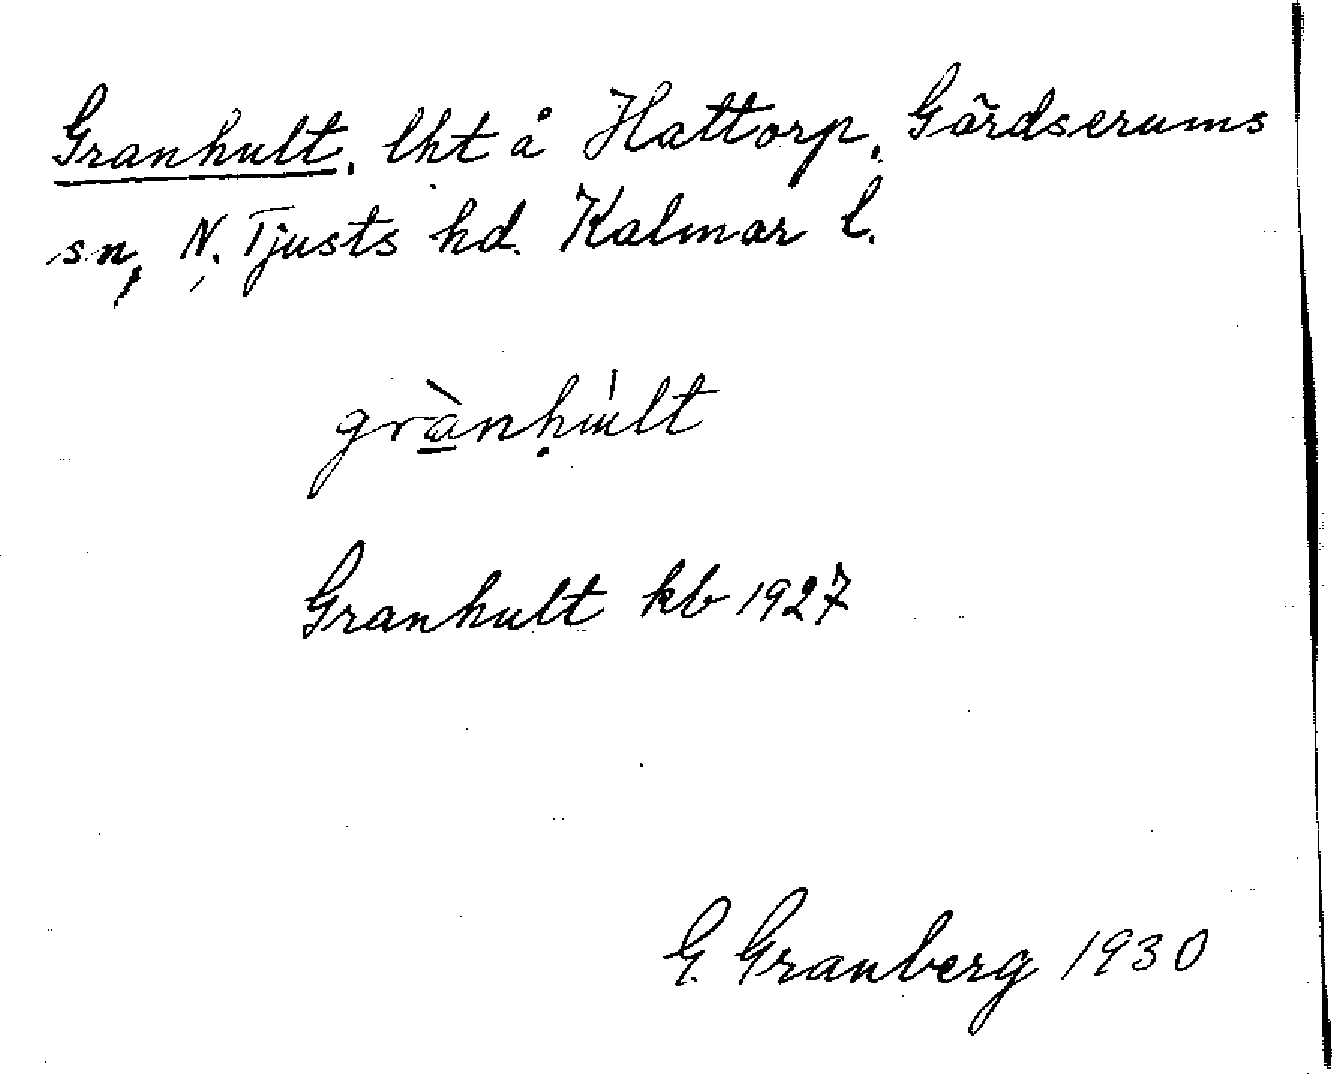 Granhult, lht å Hattorp, Gärdserums
sn, N. Tjusts hd. Kalmar l.
grànhúlt
Granhult kb 1927
G. Granberg 1930